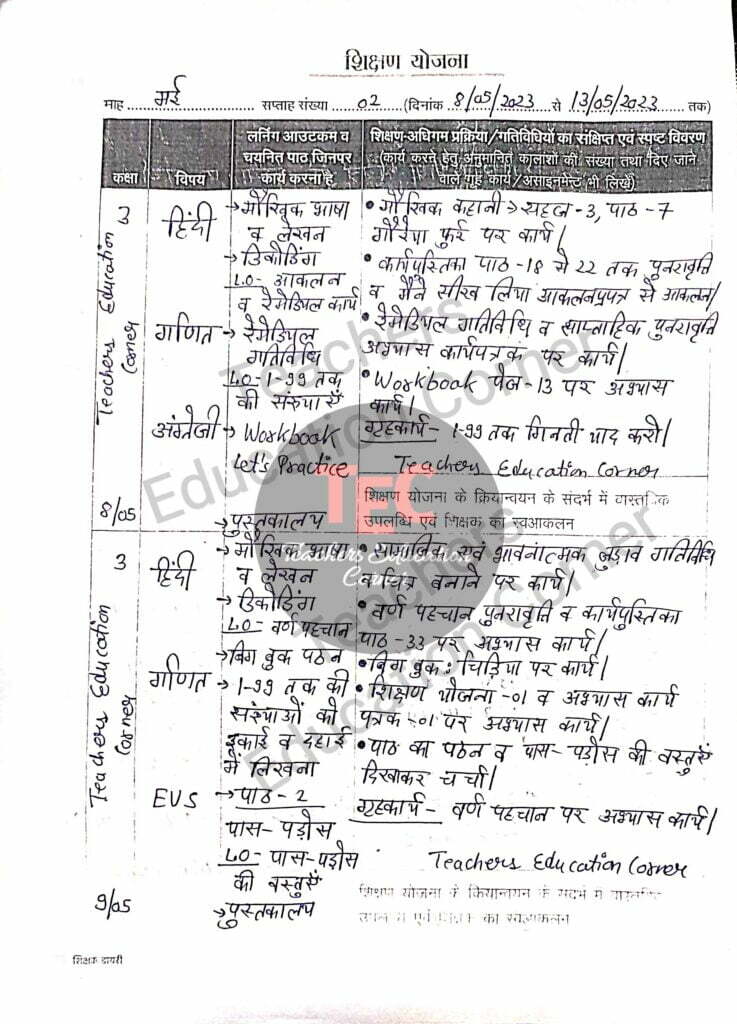 शिक्षण योजना
माह मई सप्ताह संख्या 02 (दिनांक 8/05/2023 से 13/05/2023 तक)
कक्षा
विषय
लर्निंग आउटकम व
चयनित पाठ जिनपर
कार्य करना है
शिक्षण-अधिगम प्रक्रिया/गतिविधियों का संक्षिप्त एवं स्पष्ट विवरण
(कार्य करने हेतु अनुमानित कालांशों की संख्या तथा दिए जाने
वाले गृह कार्य/असाइनमेन्ट भी लिखें)
3
Teachers Education
Corner
8/05
हिंदी
गणित
अंग्रेजी
→ मौखिक भाषा
व लेखन
→ डिकोडिंग
LO- आकलन
व रेमेडियल कार्य
→ रेमेडियल
गतिविधि
LO- 1-99 तक
की संख्याएँ
→ Workbook
Let's Practice
→ पुस्तकालय
• मौखिक कहानी → सहज-3, पाठ-7
गौरैया फुर्र पर कार्य।
• कार्यपुस्तिका पाठ-18 से 22 तक पुनरावृति
व मैंने सीख लिया आकलन प्रपत्र से आकलन।
• रेमेडियल गतिविधि व साप्ताहिक पुनरावृति
अभ्यास कार्यपत्रक पर कार्य।
• Workbook पेज-13 पर अभ्यास
कार्य।
गृहकार्य- 1-99 तक गिनती याद करो।
Teachers Education Corner
शिक्षण योजना के क्रियान्वयन के संदर्भ में वास्तविक
उपलब्धि एवं शिक्षक का स्वआकलन
3
Teachers Education
Corner
9/05
हिंदी
गणित
EVS
→ मौखिक भाषा
व लेखन
→ डिकोडिंग
LO- वर्ण पहचान
बिग बुक पठन
→ 1-99 तक की
संख्याओं को
इकाई व दहाई
में लिखना
→ पाठ-2
पास-पड़ोस
LO- पास-पड़ोस
की वस्तुएँ
→ पुस्तकालय
• सामाजिक एवं भावनात्मक जुड़ाव गतिविधि
चित्र बनाने पर कार्य।
• वर्ण पहचान पुनरावृति व कार्यपुस्तिका
पाठ-33 पर अभ्यास कार्य।
• बिग बुक: चिड़िया पर कार्य।
• शिक्षण योजना-01 व अभ्यास कार्य
पत्रक-01 पर अभ्यास कार्य।
• पाठ का पठन व पास-पड़ोस की वस्तुएँ
दिखाकर चर्चा।
गृहकार्य- वर्ण पहचान पर अभ्यास कार्य।
Teachers Education Corner
शिक्षण योजना के क्रियान्वयन के संदर्भ में वास्तविक
उपलब्धि एवं शिक्षक का स्वआकलन
शिक्षक डायरी
Teachers
Education Corner
TEC
Teachers Education
Corner
Teachers
Education Corner